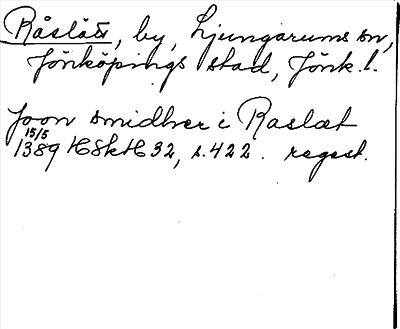 Råslätt, by, Ljungarums sn,
Jönköpings stad, Jönk. l.
Joon smidher i Raslæt
15/5
1389 HSkH 32, s. 422. regest.